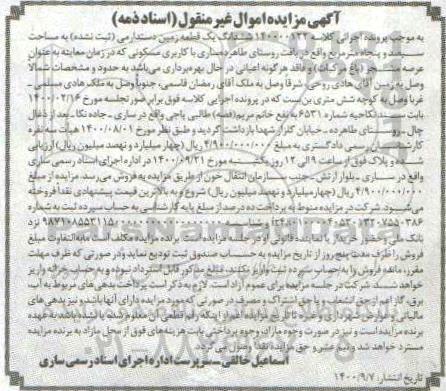 آگهی مزایده اموال غیر منقول (اسناد ذمه)
به موجب پرونده اجرائی کلاسه ۱۴۰۰۰۰۱۲۲ ششدانگ یک قطعه زمین دستدارمی (ثبت نشده) به مساحت
سیصد و پنجاه مترمربع واقع در بافت روستای طاهرده ساری با کاربری مسکونی که در زمان معاینه به عنوان
عرصه مشجر (باغ مرکبات) و فاقد هرگونه اعیانی در حال بهره‌برداری می‌باشد به حدود و مشخصات شمالا
وصل به زمین آقای هادی روحی، شرقا وصل به ملک آقای رمضان قاسمی، جنوبا وصل به ملک هادی مستلمی -
غربا وصل به کوچه شش متری بن بست که در پرونده اجرایی کلاسه فوق برابر صورتجلسه مورخ ۱۴۰۰/۰۲/۱۶
بابت سند نکاحیه شماره ۶۵۳۱ به نفع خانم مریم (فضه) طالبی پاجی واقع در ساری - جاده نکا - بعد از ذغال
چال - روستای طاهرده - خیابان گلزار شهدا بازداشت گردید و طبق نظر مورخ ۱۴۰۰/۰۸/۰۱ هیات سه نفره
کارشناس رسمی دادگستری به مبلغ ۴/۹۰۰/۰۰۰/۰۰۰ ریال (چهار میلیارد و نهصد میلیون ریال) ارزیابی
شده و پلاک فوق از ساعت ۹ الی ۱۲ روز یکشنبه مورخ ۱۴۰۰/۰۹/۲۱ در اداره اجرای اسناد رسمی ساری
واقع در ساری - بلوار ارتش - جنب سازمان انتقال خون از طریق مزایده به فروش می‌رسد. مزایده از مبلغ
۴/۹۰۰/۰۰۰/۰۰۰ ریال (چهار میلیارد و نهصد میلیون ریال) شروع و به بالاترین قیمت پیشنهادی نقدا فروخته
می‌شود. شرکت در مزایده منوط به پرداخت ده درصد از مبلغ پایه کارشناسی به حساب سپرده ثبت به شماره
نزد
بانک ملی و حضور خریدار یا نماینده قانونی او در جلسه مزایده است. برنده مزایده مکلف است مابه‌التفاوت مبلغ
فروش را ظرف مدت پنج روز از تاریخ مزایده به حساب صندوق ثبت تودیع نماید و در صورتی که ظرف مهلت
مقرر، مانده فروش را به حساب سپرده ثبت واریز نکند، مبلغ مذکور قابل استرداد نبوده و به حساب خزانه واریز
خواهد شد. شرکت در جلسه مزایده برای عموم آزاد است. لازم به ذکر است پرداخت بدهی های مربوط به آب،
برق، گاز اعم از حق انشعاب و یا حق اشتراک و مصرف در صورتی که مورد مزایده دارای آنها باشد و نیز بدهی های
مالیاتی و عوارض شهرداری و غیره تا تاریخ مزایده اعم از اینکه رقم قطعی آن معلوم شده یا نشده باشد به عهده
برنده مزایده است و نیز در صورت وجود مازاد، وجوه پرداختی بابت هزینه های فوق از محل مازاد به برنده مزایده
مسترد خواهد شد و نیم عشر و حق مزایده نقدا وصول می گردد.
اسماعیل خالقی - سرپرست اداره اجرای اسناد رسمی ساری
تاریخ انتشار: ۱۴۰۰/۹/۷
ParsNamadData
۰۲۱-۸۸۳۴۹۶۷۰-۵